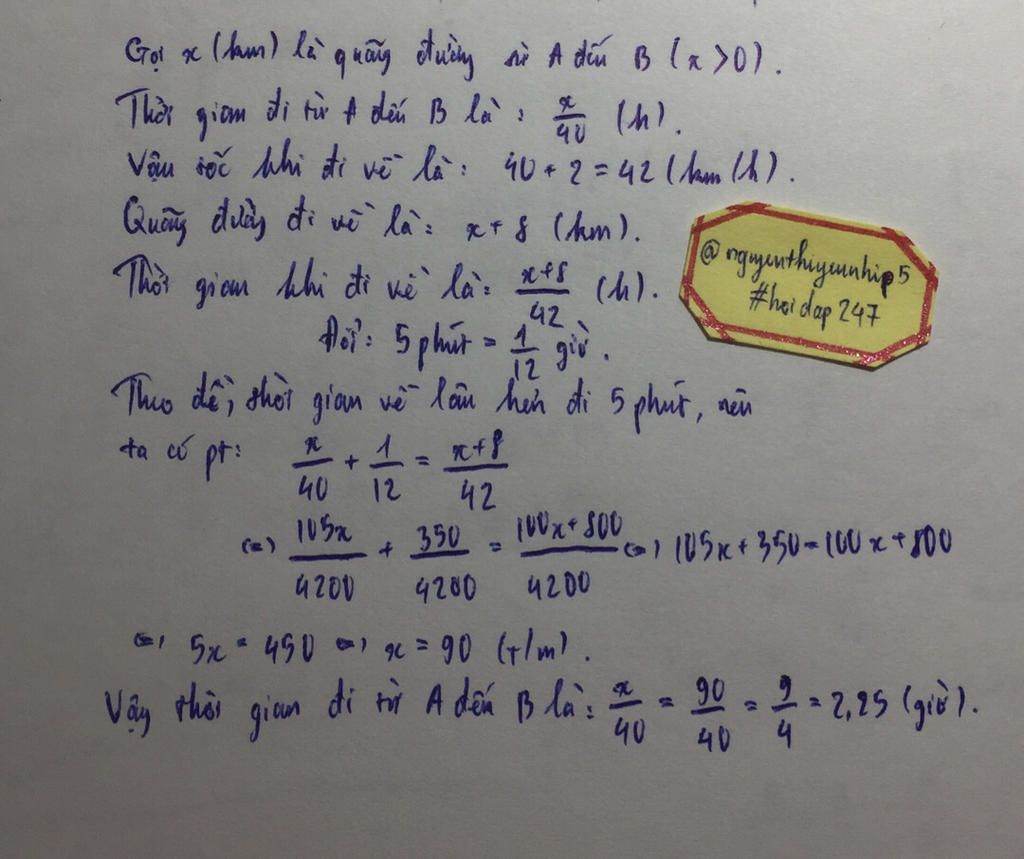 Gọi x (km) là quãng đường từ A đến B (x > 0).
Thời gian đi từ A đến B là: x/40 (h).
Vận tốc khi đi về là: 40 + 2 = 42 (km/h).
Quãng đường đi về là: x + 8 (km).
Thời gian khi đi về là: x+8/42 (h).
Đổi: 5 phút = 1/12 giờ.
Theo đề, thời gian về lâu hơn đi 5 phút, nên
ta có pt: x/40 + 1/12 = x+8/42
<=> 105x/4200 + 350/4200 = 100x+800/4200 <=> 105x + 350 = 100x + 800
<=> 5x = 450 <=> x = 90 (t/m).
Vậy thời gian đi từ A đến B là: x/40 = 90/40 = 9/4 = 2,25 (giờ).
@nguyenthiyeunhip5
#hoidap247